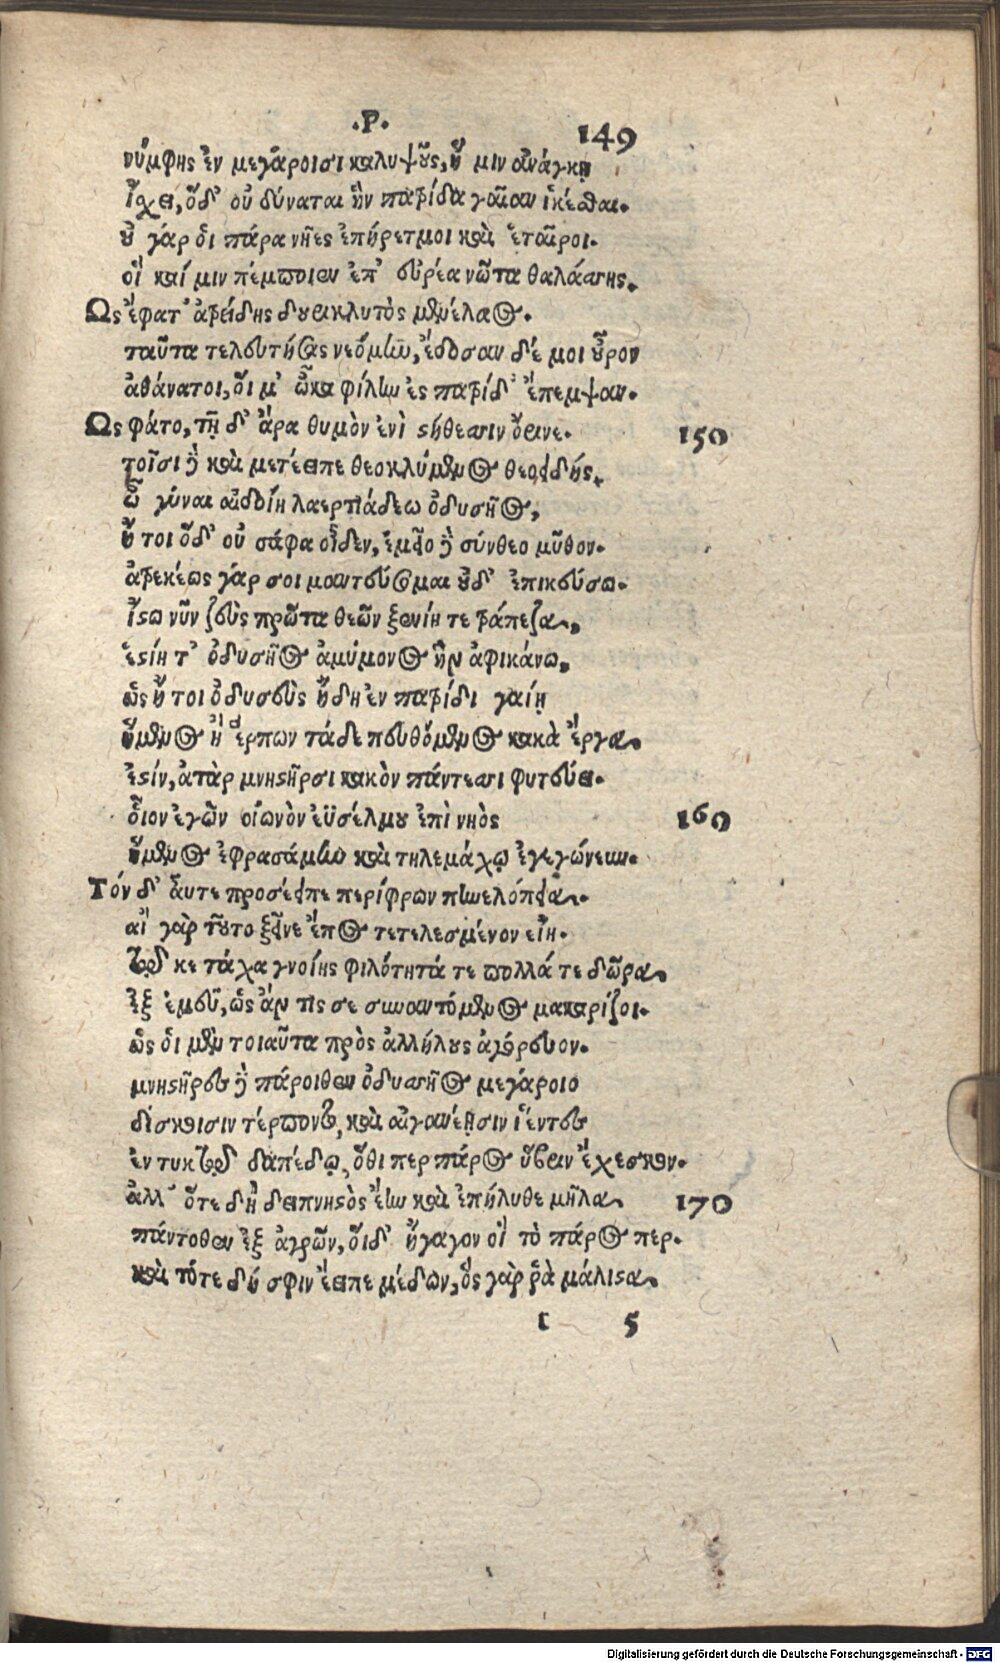 .Ρ. 149
νύμφης ἐν μεγάροισι καλυψοῦς, ἥ μιν ἀνάγκῃ
ἴχει, ὅδ' οὐ δύναται ἣν πατρίδα γαῖαν ἱκέσθαι.
οὐ γάρ ὁι πάρα νῆες ἐπήρετμοι καὶ ἑταῖροι.
οἵ καί μιν πέμποιεν ἐπ' εὐρέα νῶτα θαλάσσης.
Ως ἔφατ' ἀτρείδης δουεικλυτὸς μενέλαος.
ταῦτα τελευτήσας νεόμην, ἔδοσαν δέ μοι οὖρον
ἀθάνατοι, ὅι μ' ὦκα φίλην ἐς πατρίδ' ἔπεμψαν.
Ως φάτο, τῇ δ' ἄρα θυμὸν ἐνὶ στήθεσσιν ὄρινε. 150
τοῖσι δὲ καὶ μετέειπε θεοκλύμενος θεοειδής,
ὦ γύναι αἰδοίη λαερτιάδεω ὀδυσῆος,
ἤ τοι ὅδ' οὐ σάφα οἶδεν, ἐμεῖο δὲ σύνθεο μῦθον.
ἀτρεκέως γάρ σοι μαντεύσομαι οὐδ' ἐπικεύσω.
ἴστω νῦν ζεὺς πρῶτα θεῶν ξενίη τε τράπεζα,
ἑστίη τ' ὀδυσῆος ἀμύμονος ἣν ἀφικάνω,
ὡς ἤ τοι ὀδυσεὺς ἤδη ἐν πατρίδι γαίῃ
ἥμενος ἢ ἕρπων τάδε πευθόμενος κακὰ ἔργα.
ἐστίν, ἀτὰρ μνηστῆρσι κακὸν πάντεσσι φυτεύει.
ὅιον ἐγὼν οἰωνὸν ἐϋσέλμου ἐπὶ νηὸς 160
ἥμενος ἐφρασάμην καὶ τηλεμάχῳ ἐγεγώνευν.
Τόν δ' ἄυτε προσέειπε περίφρων πηνελόπεια.
αἲ γὰρ τοῦτο ξεῖνε ἔπος τετελεσμένον εἴη.
τῷ κε τάχα γνοίης φιλότητά τε πολλά τε δῶρα
ἐξ ἐμεῦ, ὡς ἄν τις σε συναντόμενος μακαρίζοι.
ὣς ὁι μὲν τοιαῦτα πρὸς ἀλλήλους ἀγόρευον.
μνηστῆρες δὲ πάροιθεν ὀδυσσῆος μεγάροιο
δίσκοισιν τέρποντο, καὶ αἰγανέῃσιν ἱέντες
ἐν τυκτῷ δαπέδῳ, ὅθι περ πάρος ὕβριν ἔχεσκον.
ἀλλ' ὅτε δὴ δειπνηστὸς ἔην καὶ ἐπήλυθε μῆλα 170
πάντοθεν ἐξ ἀγρῶν, ὅιδ' ἤγαγον οἳ τὸ πάρος περ.
καὶ τότε δή σφιν ἔειπε μέδων, ὃς γὰρ ῥὰ μάλιστα
t 5
Digitalisierung gefördert durch die Deutsche Forschungsgemeinschaft - DFG